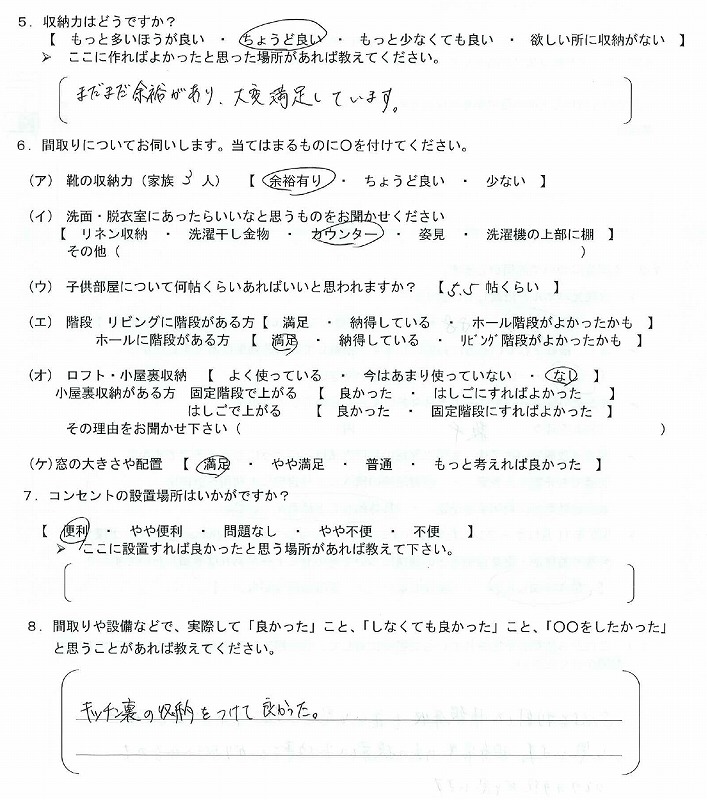 ５．収納力はどうですか？
【　もっと多いほうが良い　・　ちょうど良い　・　もっと少なくても良い　・　欲しい所に収納がない　】
➢　ここに作ればよかったと思った場所があれば教えてください。
まだまだ余裕があり、大変満足しています。
６．間取りについてお伺いします。当てはまるものに〇を付けてください。
（ア）　靴の収納力（家族　3　人）　【　余裕有り　・　ちょうど良い　・　少ない　】
（イ）　洗面・脱衣室にあったらいいなと思うものをお聞かせください
【　リネン収納　・　洗濯干し金物　・　カウンター　・　姿見　・　洗濯機の上部に棚　】
その他（　　　　　　　　　　）
（ウ）　子供部屋について何帖くらいあればいいと思われますか？　【　5.5　帖くらい　】
（エ）　階段　リビングに階段がある方【　満足　・　納得している　・　ホール階段がよかったかも　】
ホールに階段がある方　【　満足　・　納得している　・　ﾘﾋﾞﾝｸﾞ階段がよかったかも　】
（オ）　ロフト・小屋裏収納　【　よく使っている　・　今はあまり使っていない　・　なし　】
小屋裏収納がある方　固定階段で上がる　【　良かった　・　はしごにすればよかった　】
はしごで上がる　【　良かった　・　固定階段にすればよかった　】
その理由をお聞かせ下さい（　　　　　　　　　　）
（ケ）窓の大きさや配置　【　満足　・　やや満足　・　普通　・　もっと考えれば良かった　】
７．コンセントの設置場所はいかがですか？
【　便利　・　やや便利　・　問題なし　・　やや不便　・　不便　】
➢　ここに設置すれば良かったと思う場所があれば教えて下さい。
８．間取りや設備などで、実際して「良かった」こと、「しなくても良かった」こと、「〇〇をしたかった」
と思うことがあれば教えてください。
キッチン裏の収納をつけて良かった。